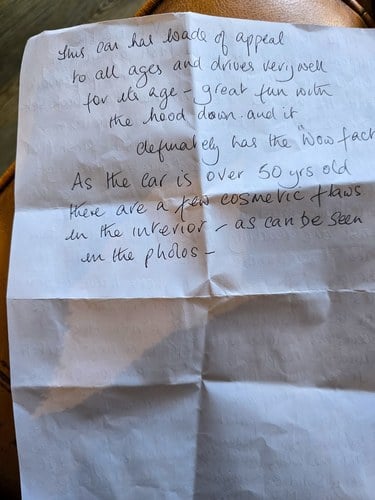 This car has loads of appeal
to all ages and drives very well
for its age - great fun with
the hood down - and it
definately has the "Wow fact
As the car is over 50 yrs old
there are a few cosmetic flaws
in the interior - as can be seen
in the photos -